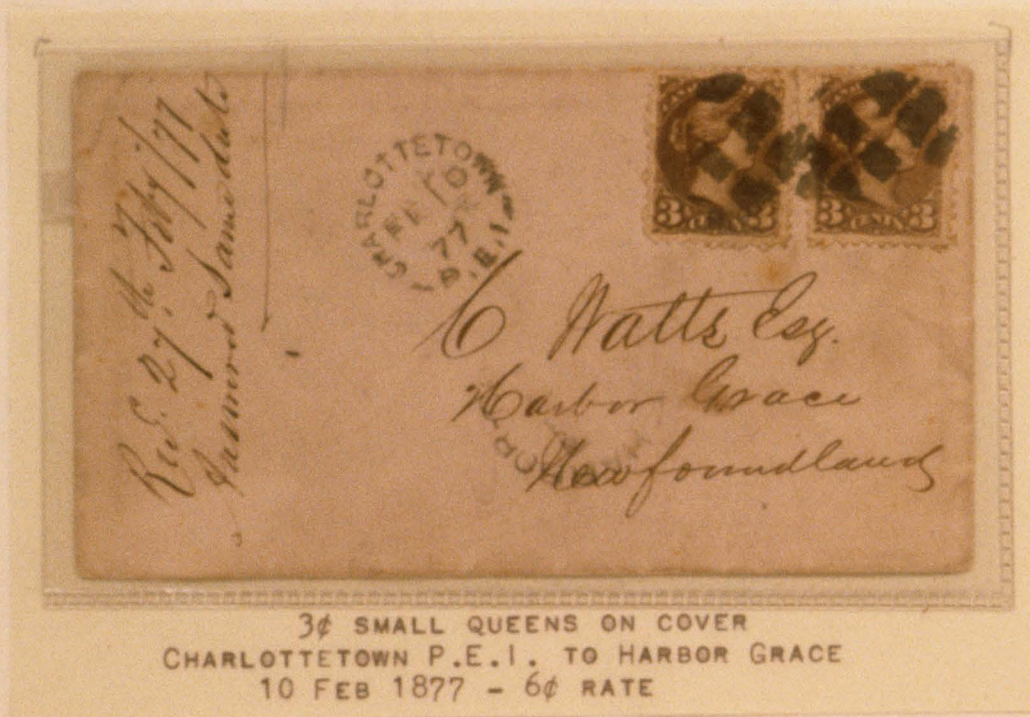 Recd. 27th Feby/77
Answered Same date
CHARLOTTETOWN
FE 10
77
P.E.I.
3 CENTS 3
3 CENTS 3
C Watts Esq.
Harbor Grace
Newfoundland
3¢ SMALL QUEENS ON COVER
CHARLOTTETOWN P.E.I. TO HARBOR GRACE
10 FEB 1877 - 6¢ RATE